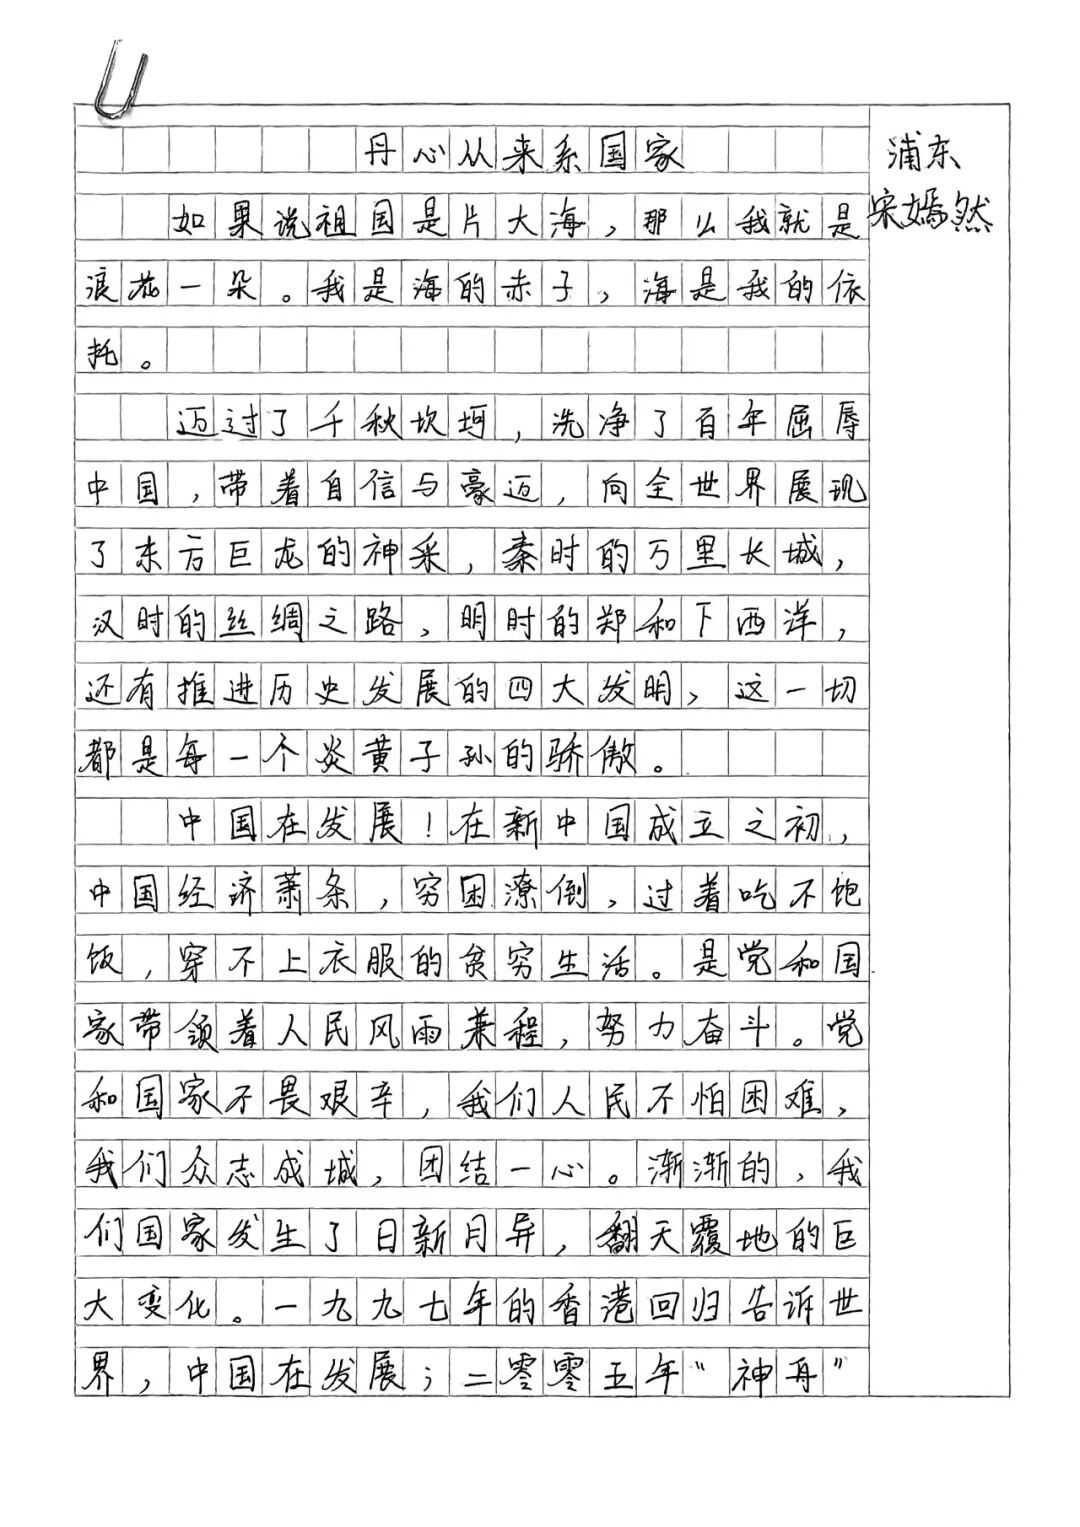 丹心从来系国家
浦东
宋嫣然
如果说祖国是片大海，那么我就是
浪花一朵。我是海的赤子，海是我的依
托。
迈过了千秋坎坷，洗净了百年屈辱
中国，带着自信与豪迈，向全世界展现
了东方巨龙的神采，秦时的万里长城，
汉时的丝绸之路，明时的郑和下西洋，
还有推进历史发展的四大发明，这一切
都是每一个炎黄子孙的骄傲。
中国在发展！在新中国成立之初，
中国经济萧条，穷困潦倒，过着吃不饱
饭，穿不上衣服的贫穷生活。是党和国
家带领着人民风雨兼程，努力奋斗。党
和国家不畏艰辛，我们人民不怕困难，
我们众志成城，团结一心。渐渐的，我
们国家发生了日新月异，翻天覆地的巨
大变化。一九九七年的香港回归告诉世
界，中国在发展；二零零五年“神舟”